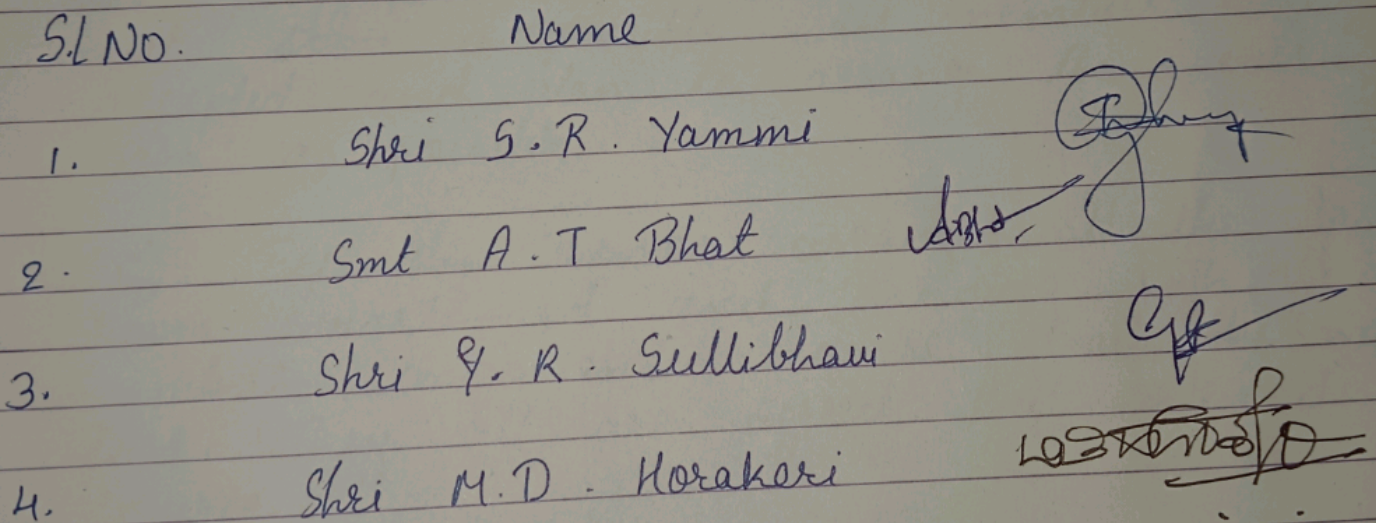 S.L NO. Name
1. Shri S. R. Yammi
2. Smt A. T Bhat
3. Shri Y. R. Sullibhavi
4. Shri M. D. Horakeri